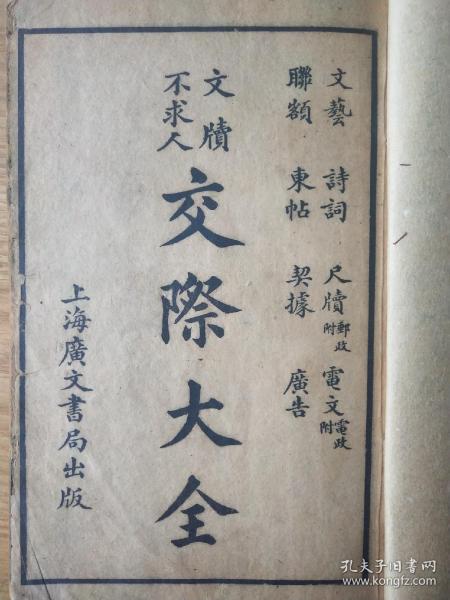 文藝 詩詞 尺牘附郵政 電文附電政
聯額 柬帖 契據 廣告
文牘
不求人
交際大全
上海廣文書局出版
孔夫子旧书网
www.kongfz.com